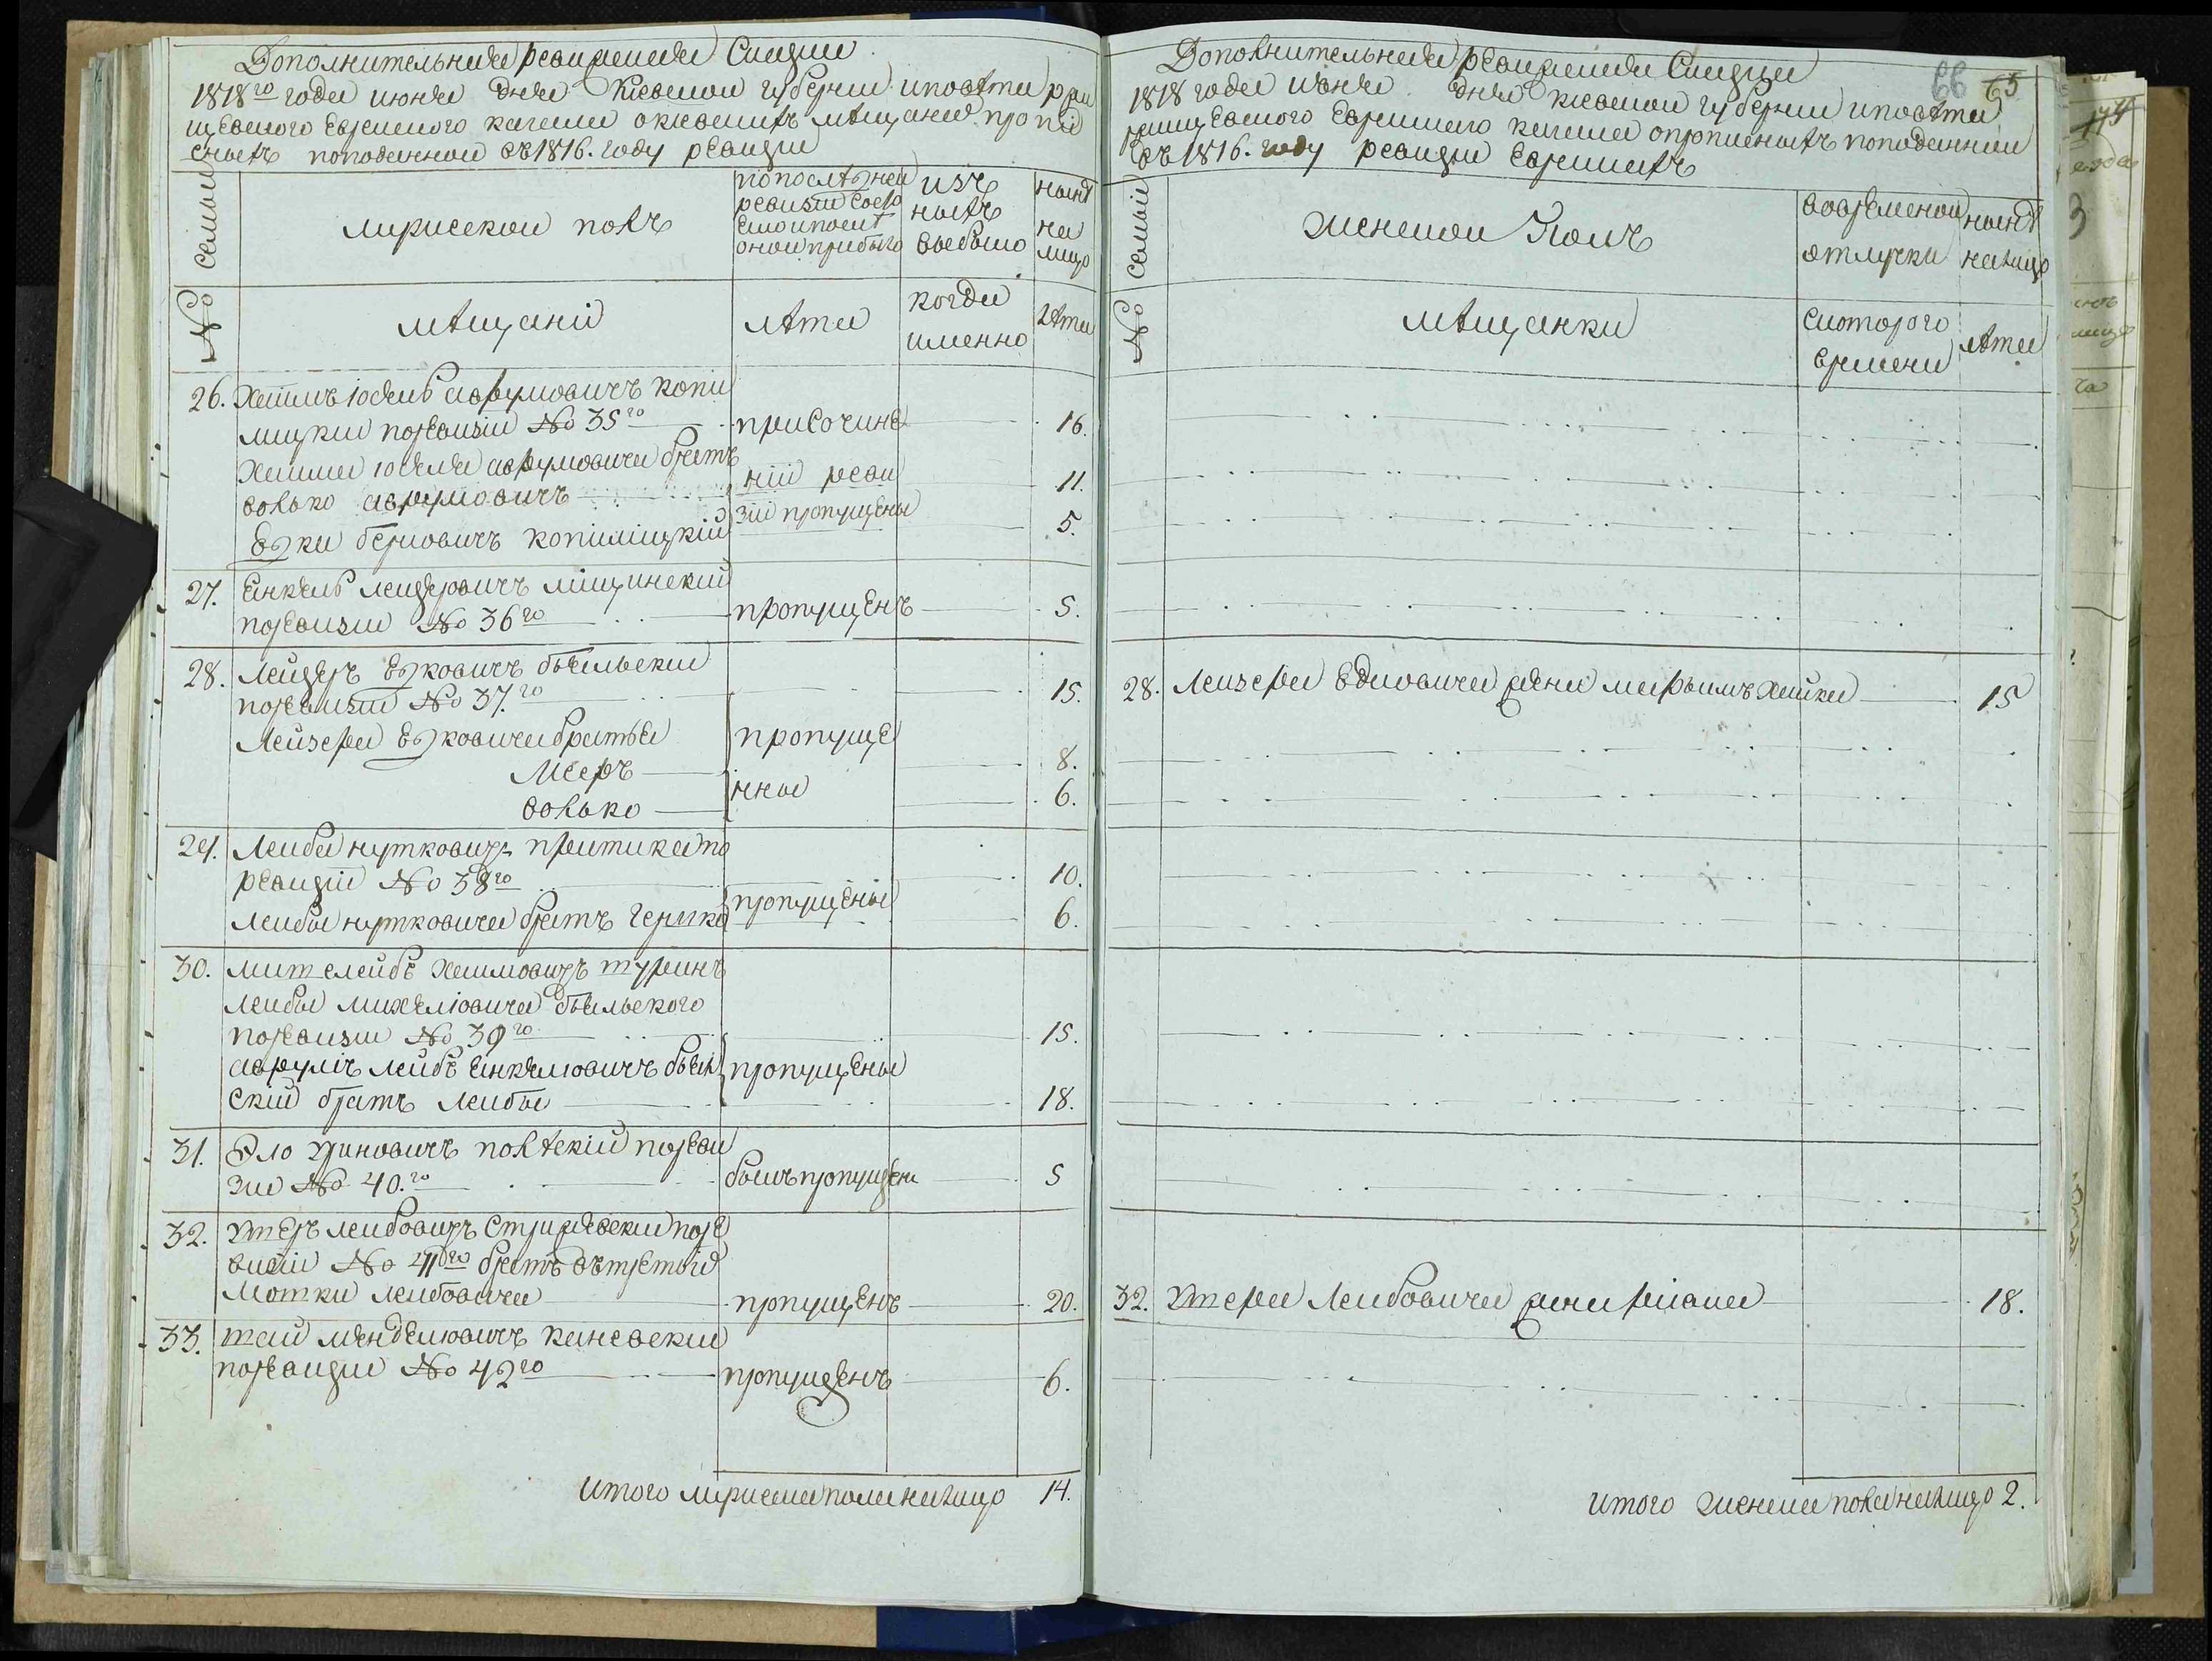 Дополнительная ревижская Сказка
1818го года июня дня Киевской губернии и повета Ржи
щевского Еврейского кагала о киевских мещанах пропи
сных по поданной въ 1816. году ревизии
№ семьи
мужеской полъ
по последней ревизии состояло и после оной прибыло
изъ ныхъ выбыло
ныне на лицо
мещаниі
лета
когда именно
лета
26. Хаимъ иосель аврумовичъ копи
лицкии по ревизіи № 35го
при сочине
16.
Хаима иоселя аврумовича братъ
волько аврумовичъ
ніи реви
11.
Ецки берковичъ копиліцкій
зіи пропущены
5.
27. Енкель лейзеровичъ міщинскии
по ревизіи № 36го
пропущенъ
5.
28. Лейзеръ Ецковичъ бѣильскии
по ревизіи № 37.го
15.
Лейзера Ецковича братья
пропуще
Мееръ
8.
волько
нные
6.
29. Лейба нутковичъ притика по
ревизіи № 38го
10.
лейбы нутковича братъ Гершко
пропущены
6.
30. мит слейбъ хаимовичъ туринъ
лейбы михелювича бѣильского
по ревизіи № 39го
15.
аврумъ лейбъ Енкелювичъ бѣил
ский братъ лейбы
пропущены
18.
31. Эло хриновичъ полѣскій по реви
зіи № 40.го
былъ пропущен
5
32. Утеръ лейбовичъ Стрижевскии по ре
визіи № 41го братъ вътретый
Мотки лейбовича
пропущенъ
20.
33. шай менделювичъ каневскии
по ревизіи № 42го
пропущенъ
6.
итого мужеска пола на лицо 14.
Дополнительная ревижская Сказка
66 65
1818 года июня дня киевской губернии и повета
Ржищевского Еврейского кагала о прописныхъ по поданной
въ 1816. году ревизіи Евреяхъ
№ семьи
женской Полъ
во временной отлучки
ныне на лицо
мещанки
с которого времени
лета
28. Лейзера Едковича жена мирьямъ хайка
15
32. Утера Лейбовича жена ривка
18.
итого женска пола на лицо 2.